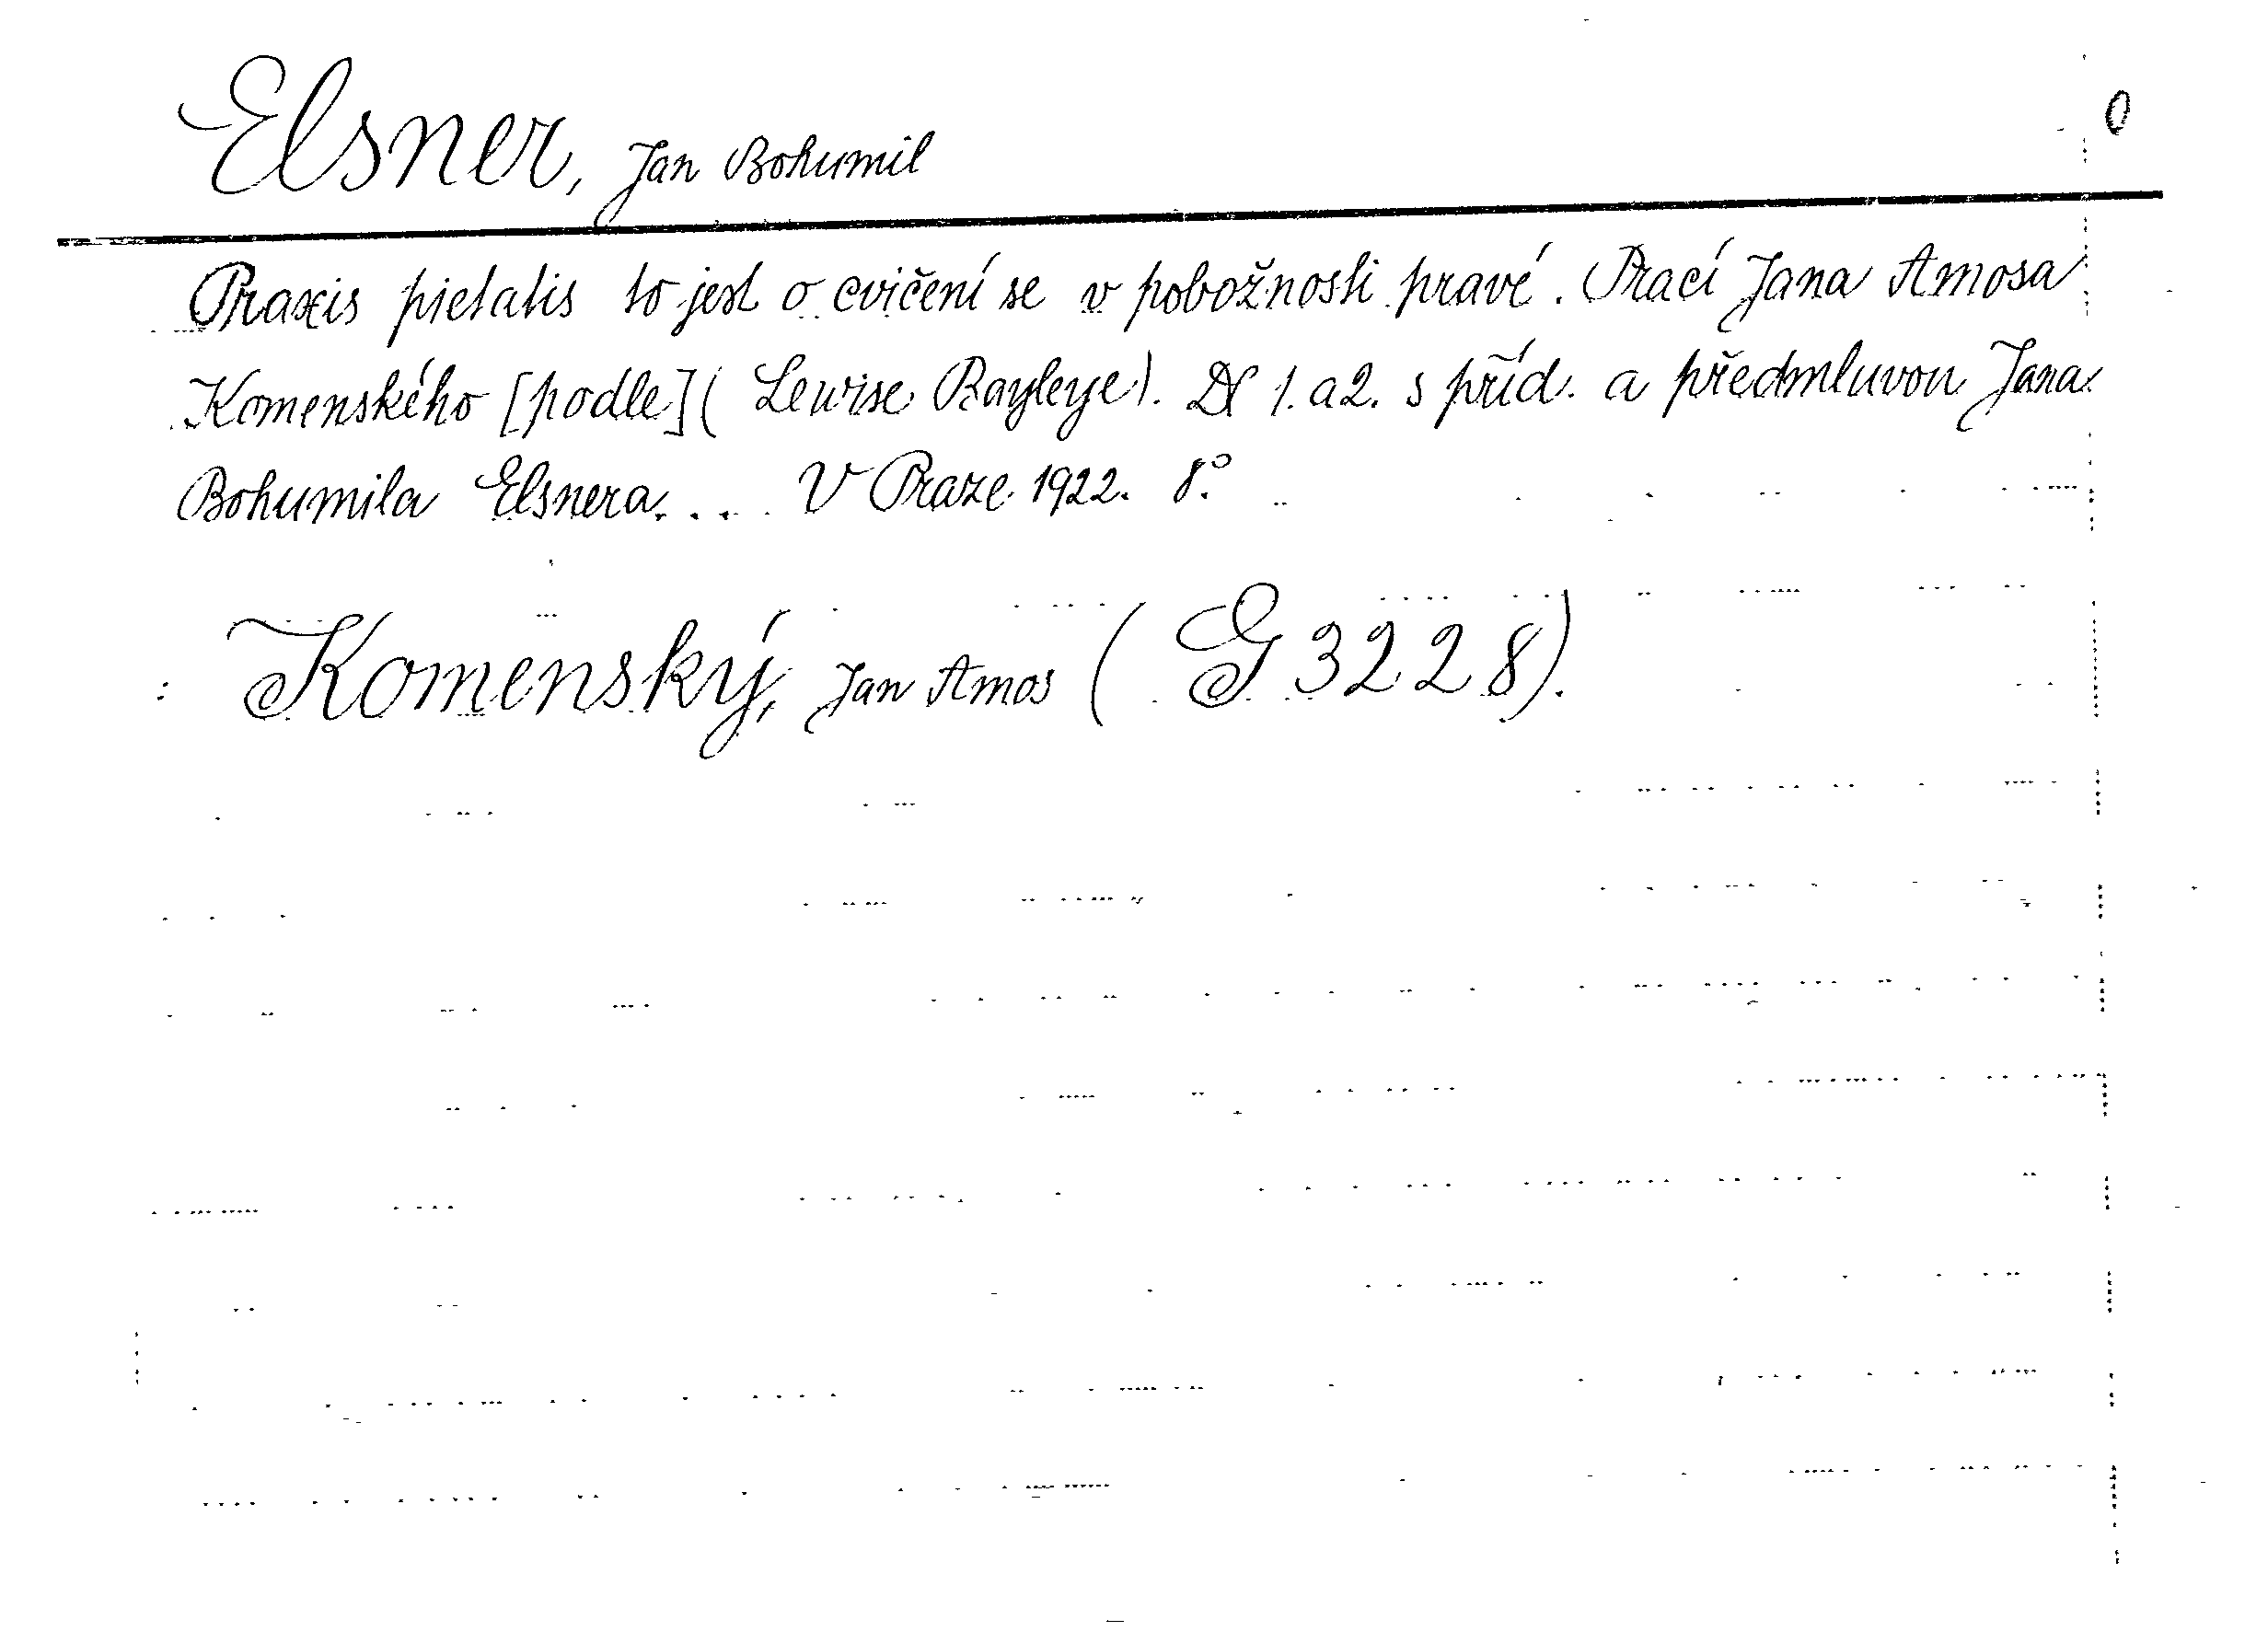 Elsner, Jan Bohumil 0
Praxis pietatis to jest o cvičení se v pobožnosti pravé. Prací Jana Amosa
Komenského [podle] (Lewise Bayleye). Dl 1. a 2. s příd. a předmluvou Jana
Bohumila Elsnera. . . . V Praze 1922. 8°.
Komenský, Jan Amos (G 3228).